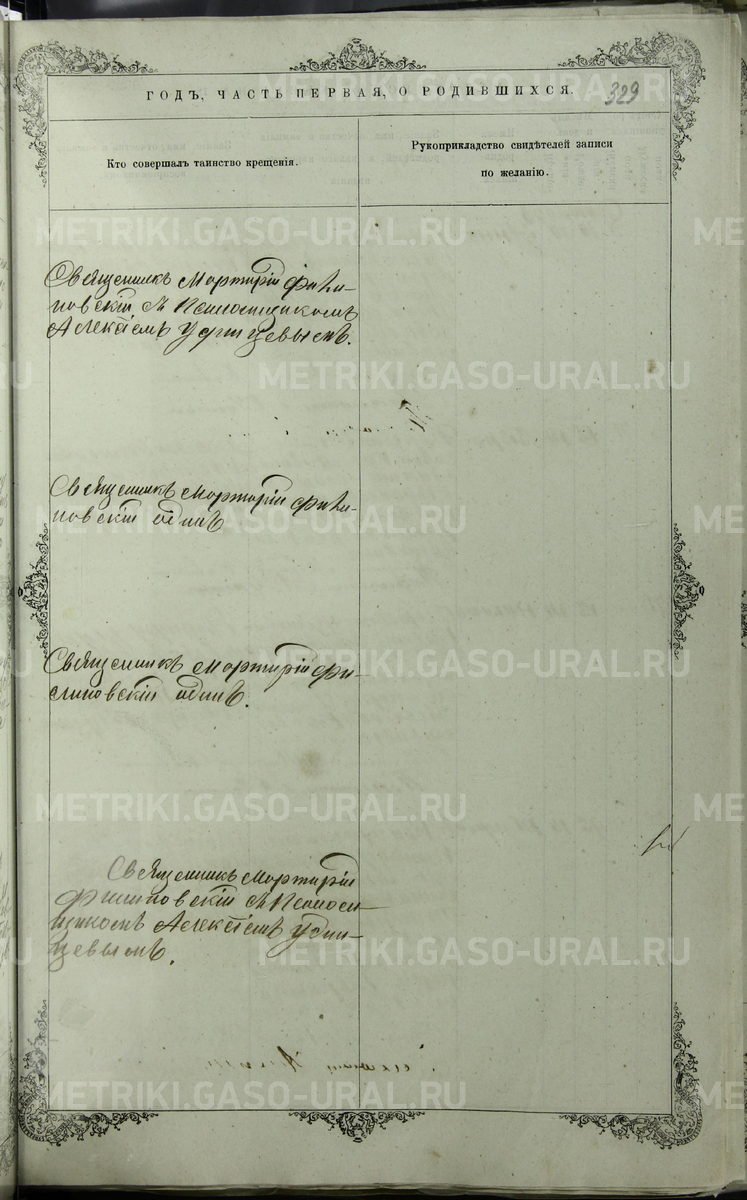 ГОДЪ, ЧАСТЬ ПЕРВАЯ, О РОДИВШИХСЯ. 329
Кто совершалъ таинство крещенія.
Рукоприкладство свидѣтелей записи
по желанію.
Священникъ Мартирій Фили-
повскій съ Псаломщикомъ
Алексѣемъ Удинцевымъ.
Священникъ Мартирій Фили-
повскій одинъ
Священникъ Мартирій Фи-
липовскій одинъ.
Священникъ Мартирій
Филиповскій съ Псалом-
щикомъ Алексѣемъ Удин-
цевымъ.
METRIKI.GASO-URAL.RU